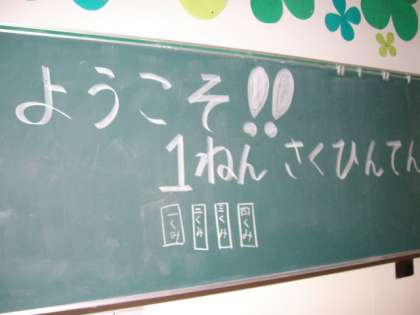 ようこそ!!
1ねん さくひんてん
一くみ 二くみ 三くみ 四くみ